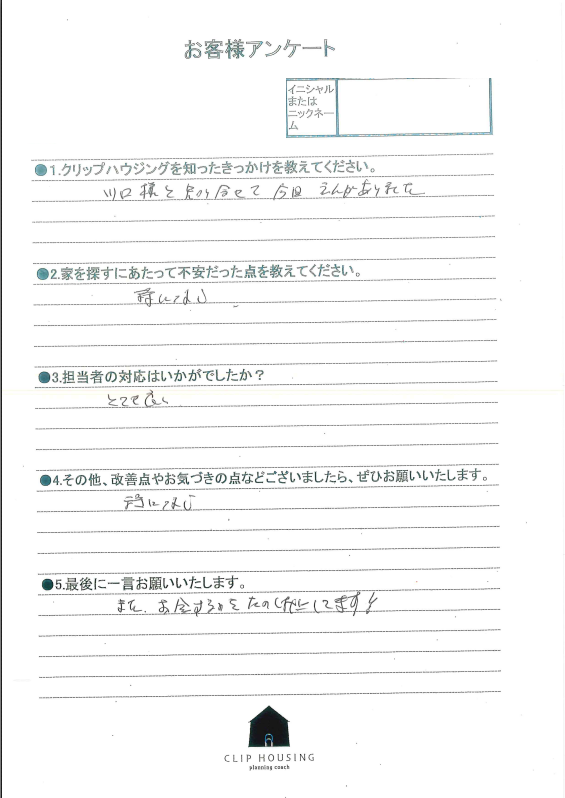 お客様アンケート
イニシャル
または
ニックネー
ム
●1.クリップハウジングを知ったきっかけを教えてください。
川口様と知り合せて 今回 えんがありました
●2.家を探すにあたって不安だった点を教えてください。
特になし
●3.担当者の対応はいかがでしたか？
とても良い
●4.その他、改善点やお気づきの点などございましたら、ぜひお願いいたします。
特になし
●5.最後に一言お願いいたします。
また、お会する
してます!
CLIP HOUSING
planning coach